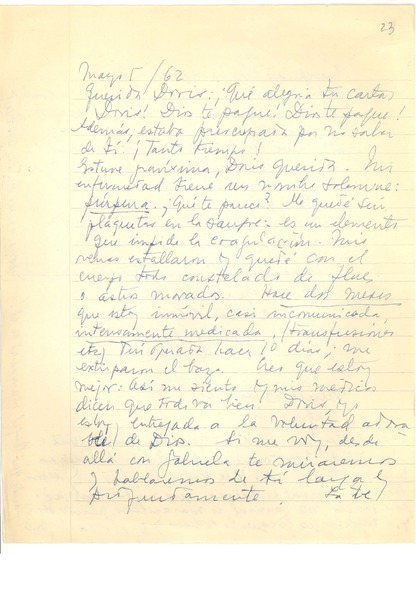 23
Mayo 5/62
Querida Doris: ¡Qué alegría tu carta,
¡Doris! Dios te pague! Dios te pague!
Además, estaba preocupada por no saber
de ti. ¡Tanto tiempo!
Estuve Doris querida. Mi
enfermedad tiene un nombre solemne:
púrpura. ¿Qué te parece? Me quedé sin
plaquetas en la sangre: es un elemento
que impide la coagulación. Mis
venas estallaron y quedé con el
cuerpo todo constelado de flores
o astros morados. Hace dos meses
que estoy inmóvil, casi incomunicada,
intensamente medicada, (transfusiones
etc) Fui operada hace 10 días; me
extirparon el bazo. Creo que estoy
mejor: así me siento y mis médicos
dicen que todo va bien. Doris, yo
estoy entregada a la voluntad adora
ble de Dios. Si me voy, desde
allá con Gabriela te miraremos
y hablaremos de ti larga y
profundamente.